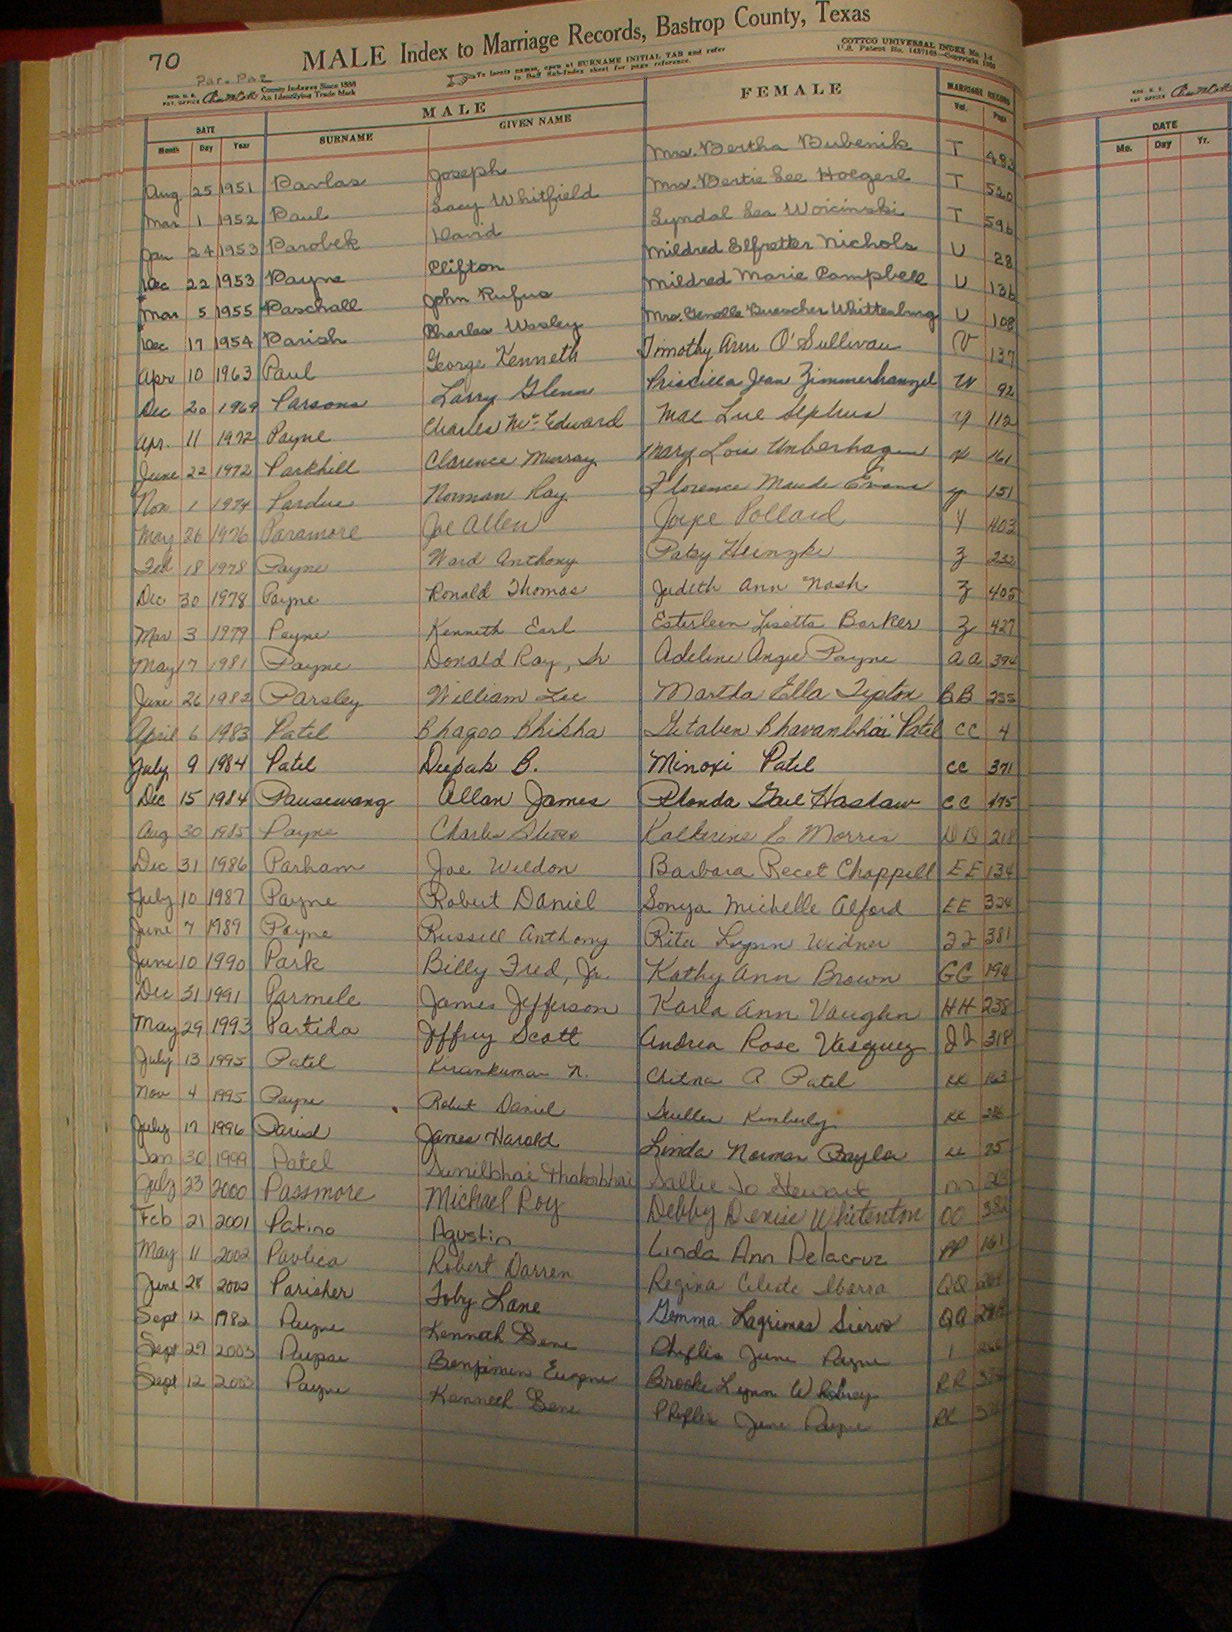 70
MALE Index to Marriage Records, Bastrop County, Texas
Par-Paz
COTTCO UNIVERSAL INDEX
County Indexes Since 1888
An Identifying Trade Mark
To locate names, open at SURNAME INITIAL TAB and refer
to Buff Sub-Index sheet for page reference.
MALE FEMALE MARRIAGE RECORD
DATE SURNAME GIVEN NAME Vol. Page
Month Day Year
DATE
Mo. Day Yr.
Aug 25 1951 Pavlas Joseph Mrs. Bertha Bubenik T 483
Mar 1 1952 Paul Lacy Whitfield Mrs. Bertie Lee Hoegerl T 520
Jan 24 1953 Parobek David Lyndal Lea Woicinski T 596
Dec 22 1953 Payne Clifton Mildred Elfretter Nichols U 28
Mar 5 1955 Paschall John Rufus Mildred Marie Campbell U 136
Dec 17 1954 Parish Charles Wesley Mrs. Genelle Buescher Whittenburg U 108
Apr 10 1963 Paul George Kenneth Timothy Ann O'Sullivan V 137
Dec 20 1969 Parsons Larry Glenn Priscilla Jean Zimmerhanzel W 92
Apr. 11 1972 Payne Charles Mc Edward Mae Lue 112
June 22 1972 Parkhill Clarence Murray Mary Lois Umberhagen 161
Nov 1 1974 Pardue Norman Ray Florence Maude Evans 151
May 26 1976 Paramore Joe Allen Joyce Pollard Y 403
Feb 18 1978 Payne Ward Anthony Patsy Heinzke Z 222
Dec 30 1978 Payne Ronald Thomas Judith Ann Nash Z 405
Mar 3 1979 Payne Kenneth Earl Esterleen Lisette Barker Z 427
May 17 1981 Payne Donald Ray, Sr Adeline Angie Payne AA 394
June 26 1982 Parsley William Lee Martha Ella Tipton BB 255
April 6 1983 Patel Bhagoo Bhikha Gitaben Bhavanbhai Patel CC 4
July 9 1984 Patel Deepak B. Minoxi Patel CC 371
Dec 15 1984 Pausewang Allan James Rhonda Gail Haslaw CC 475
Aug 30 1985 Payne Charles Steven Katherine E Morris DD 218
Dec 31 1986 Parham Joe Weldon Barbara Recet Chappell EE 134
July 10 1987 Payne Robert Daniel Sonya Michelle Alford EE 324
June 7 1989 Payne Russell Anthony Rita Lynn Widner 381
June 10 1990 Park Billy Fred, Jr. Kathy Ann Brown GG 194
Dec 31 1991 Parmele James Jefferson Karla Ann Vaughn HH 238
May 29 1993 Partida Jeffrey Scott Andrea Rose Vasquez JJ 318
July 13 1995 Patel Kirankumar N. Chetna A Patel KK 163
Nov 4 1995 Payne Robert Daniel Kimberly KK
July 17 1996 James Harold Linda Norman 25
Jan 30 1999 Patel Sunilbhai Thakorbhai Sallie Jo Stewart
July 23 2000 Passmore Michael Roy Debby Denise Whitenton OO 382
Feb 21 2001 Patino Agustin Linda Ann Delacruz PP 161
May 11 2002 Pavlica Robert Darren Regina Celede Ibarra QQ
June 28 2002 Parisher Toby Lane Gemma Lagrimas Siervo QQ
Sept 12 1982 Payne Kenneth Gene Phyllis June Payne
Sept 27 2003 Benjamin Eugene Brooke Lynn RR
Sept 12 Payne Kenneth Gene Phyllis June Payne RR